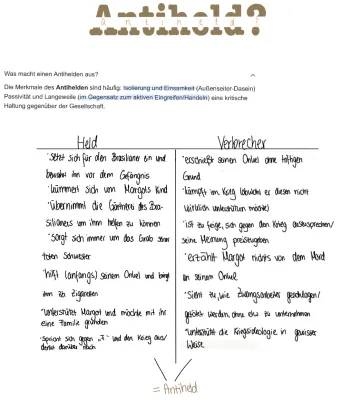 Antiheld?
antiheld?
Was macht einen Antihelden aus?
Die Merkmale des Antihelden sind häufig: Isolierung und Einsamkeit (Außenseiter-Dasein)
Passivität und Langeweile (im Gegensatz zum aktiven Eingreifen/Handeln) eine kritische
Haltung gegenüber der Gesellschaft.
Held
-setzt sich für den Brasilianer ein und
bewahrt ihn vor dem Gefängnis
-kümmert sich um Margots Kind
-übernimmt die Gärtnerei des Bra-
silianers um ihm helfen zu können
-sorgt sich immer um das Grab seiner
toten Schwester
-hilft (anfangs) seinem Onkel und bringt
ihm zb. Zigaretten
-unterstützt Margot und möchte mit ihr
eine Familie gründen
-spricht sich gegen "F" und den Krieg aus/
denkt darüber nach
Verbrecher
-erschießt seinen Onkel ohne triftigen
Grund
-kämpft im Krieg (obwohl er diesen nicht
wirklich unterstützen möchte)
-ist zu feige, sich gegen den Krieg auszusprechen/
seine Meinung preiszugeben
-erzählt Margot nichts von dem Mord
an seinem Onkel
-sieht zu, wie Zwangsarbeiter geschlagen/
getötet werden, ohne etw. zu unternehmen
-unterstützt die Kriegsideologie in gewisser
Weise
= Antiheld